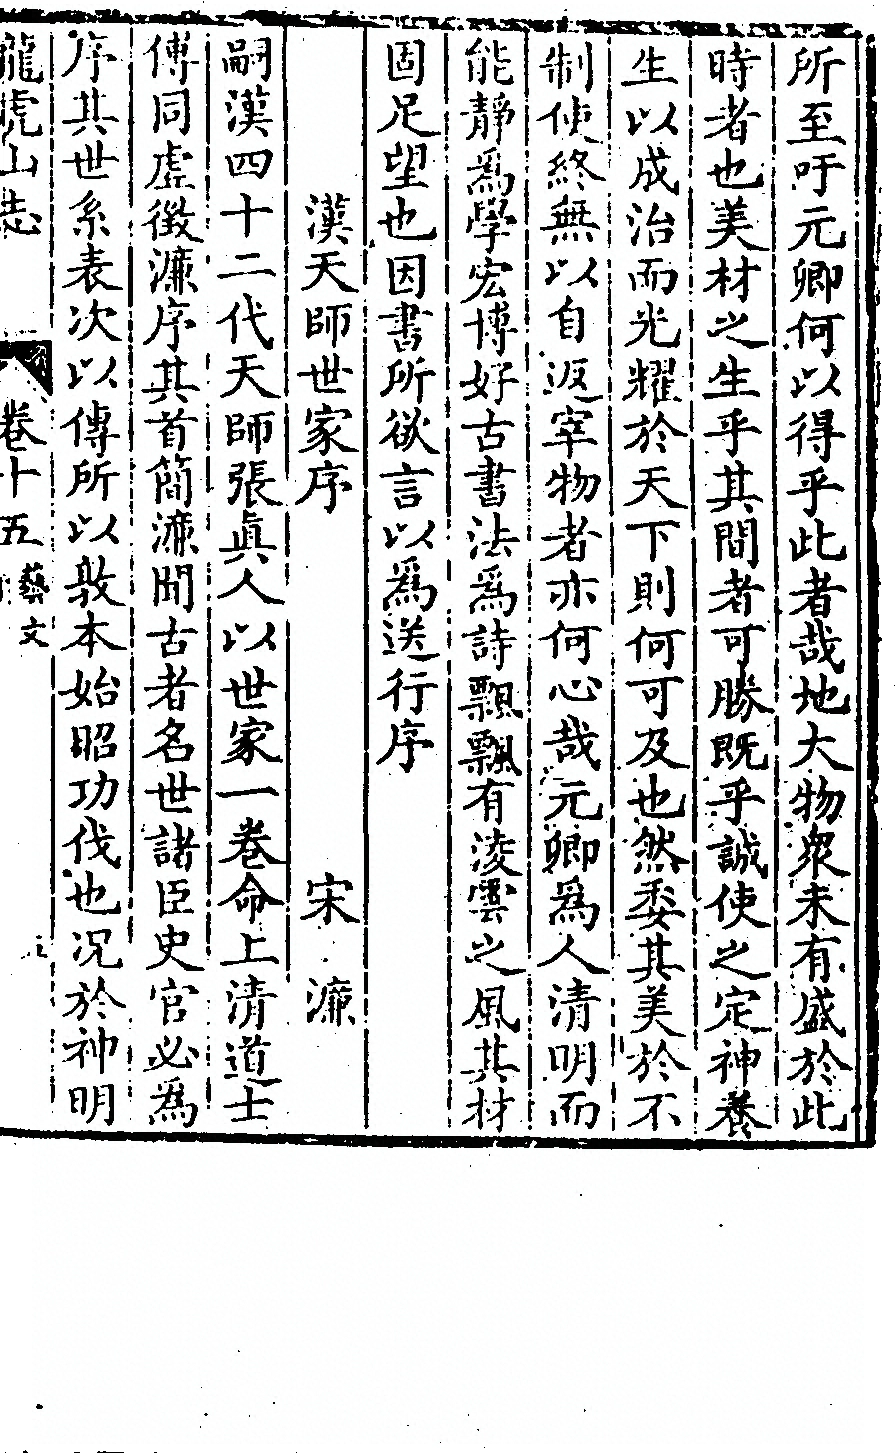 所至吁元卿何以得乎此者哉地大物衆未有盛於此
時者也美材之生乎其間者可勝既乎誠使之定神養
生以成治而光耀於天下則何可及也然委其美於不
制使終無以自返宰物者亦何心哉元卿爲人清明而
能靜爲學宏博好古書法爲詩飄飄有淩雲之風其材
固足望也因書所欲言以爲送行序
漢天師世家序 宋濂
嗣漢四十二代天師張眞人以世家一卷命上清道士
傅同虛徵濂序其首簡濂聞古者名世諸臣史官必爲
序其世系表次以傳所以敦本始昭功伐也況於神明
龍虎山志 卷十五 藝文